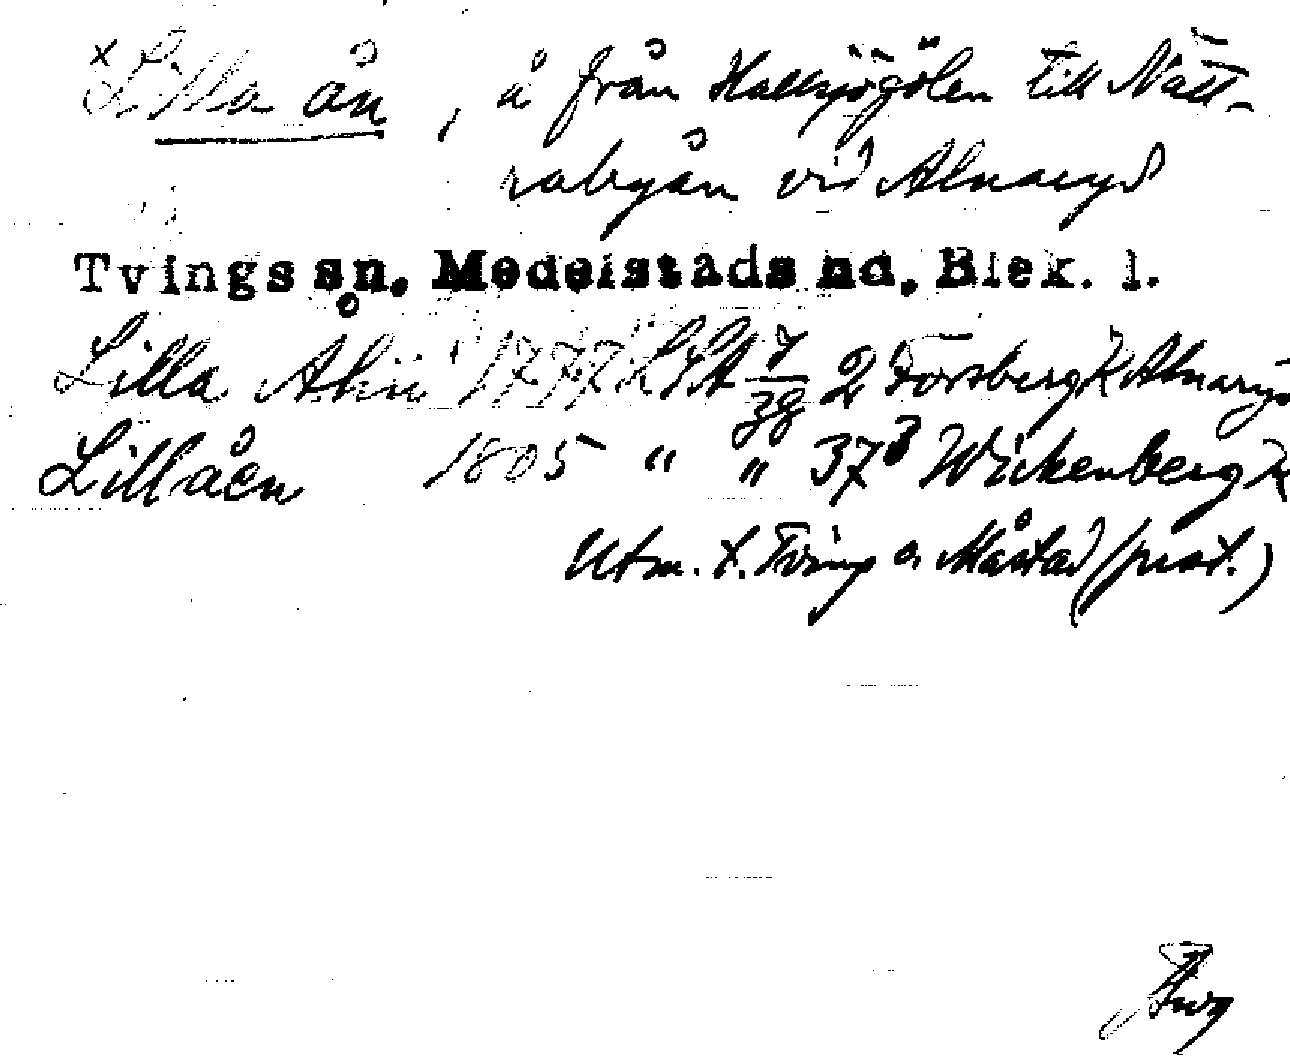 x Lilla ån, å från Hallsjögölen till Nätt-
rabyån vid Alnaryd
Tvings sn. Medelstads hd. Blek. l.
Lilla Åhn 1777 LSA 7/38 2 Forsberg K Alnaryd
Lillåen 1805 " " 37 Wickenberg K
Utm. t. Tving o. Måstad (prot.)